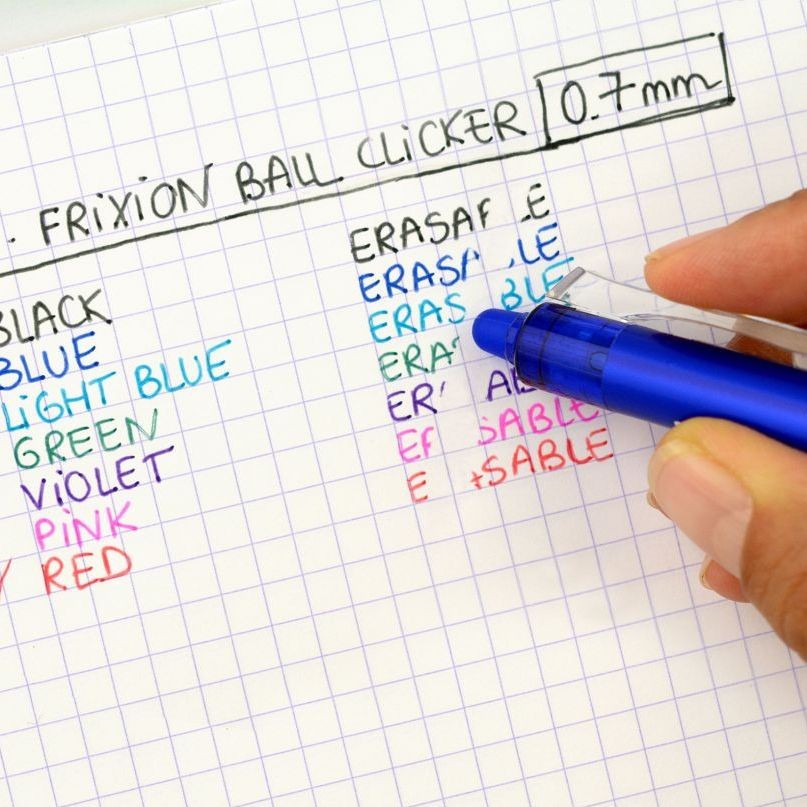 . FRiXiON BALL CLiCKER 0.7mm
BLACK
BLUE
LiGHT BLUE
GREEN
ViOLET
PiNK
RED
ERASA E
ERAS LE
ERAS BLE
ERA
ER A
E SABLE
E SABLE